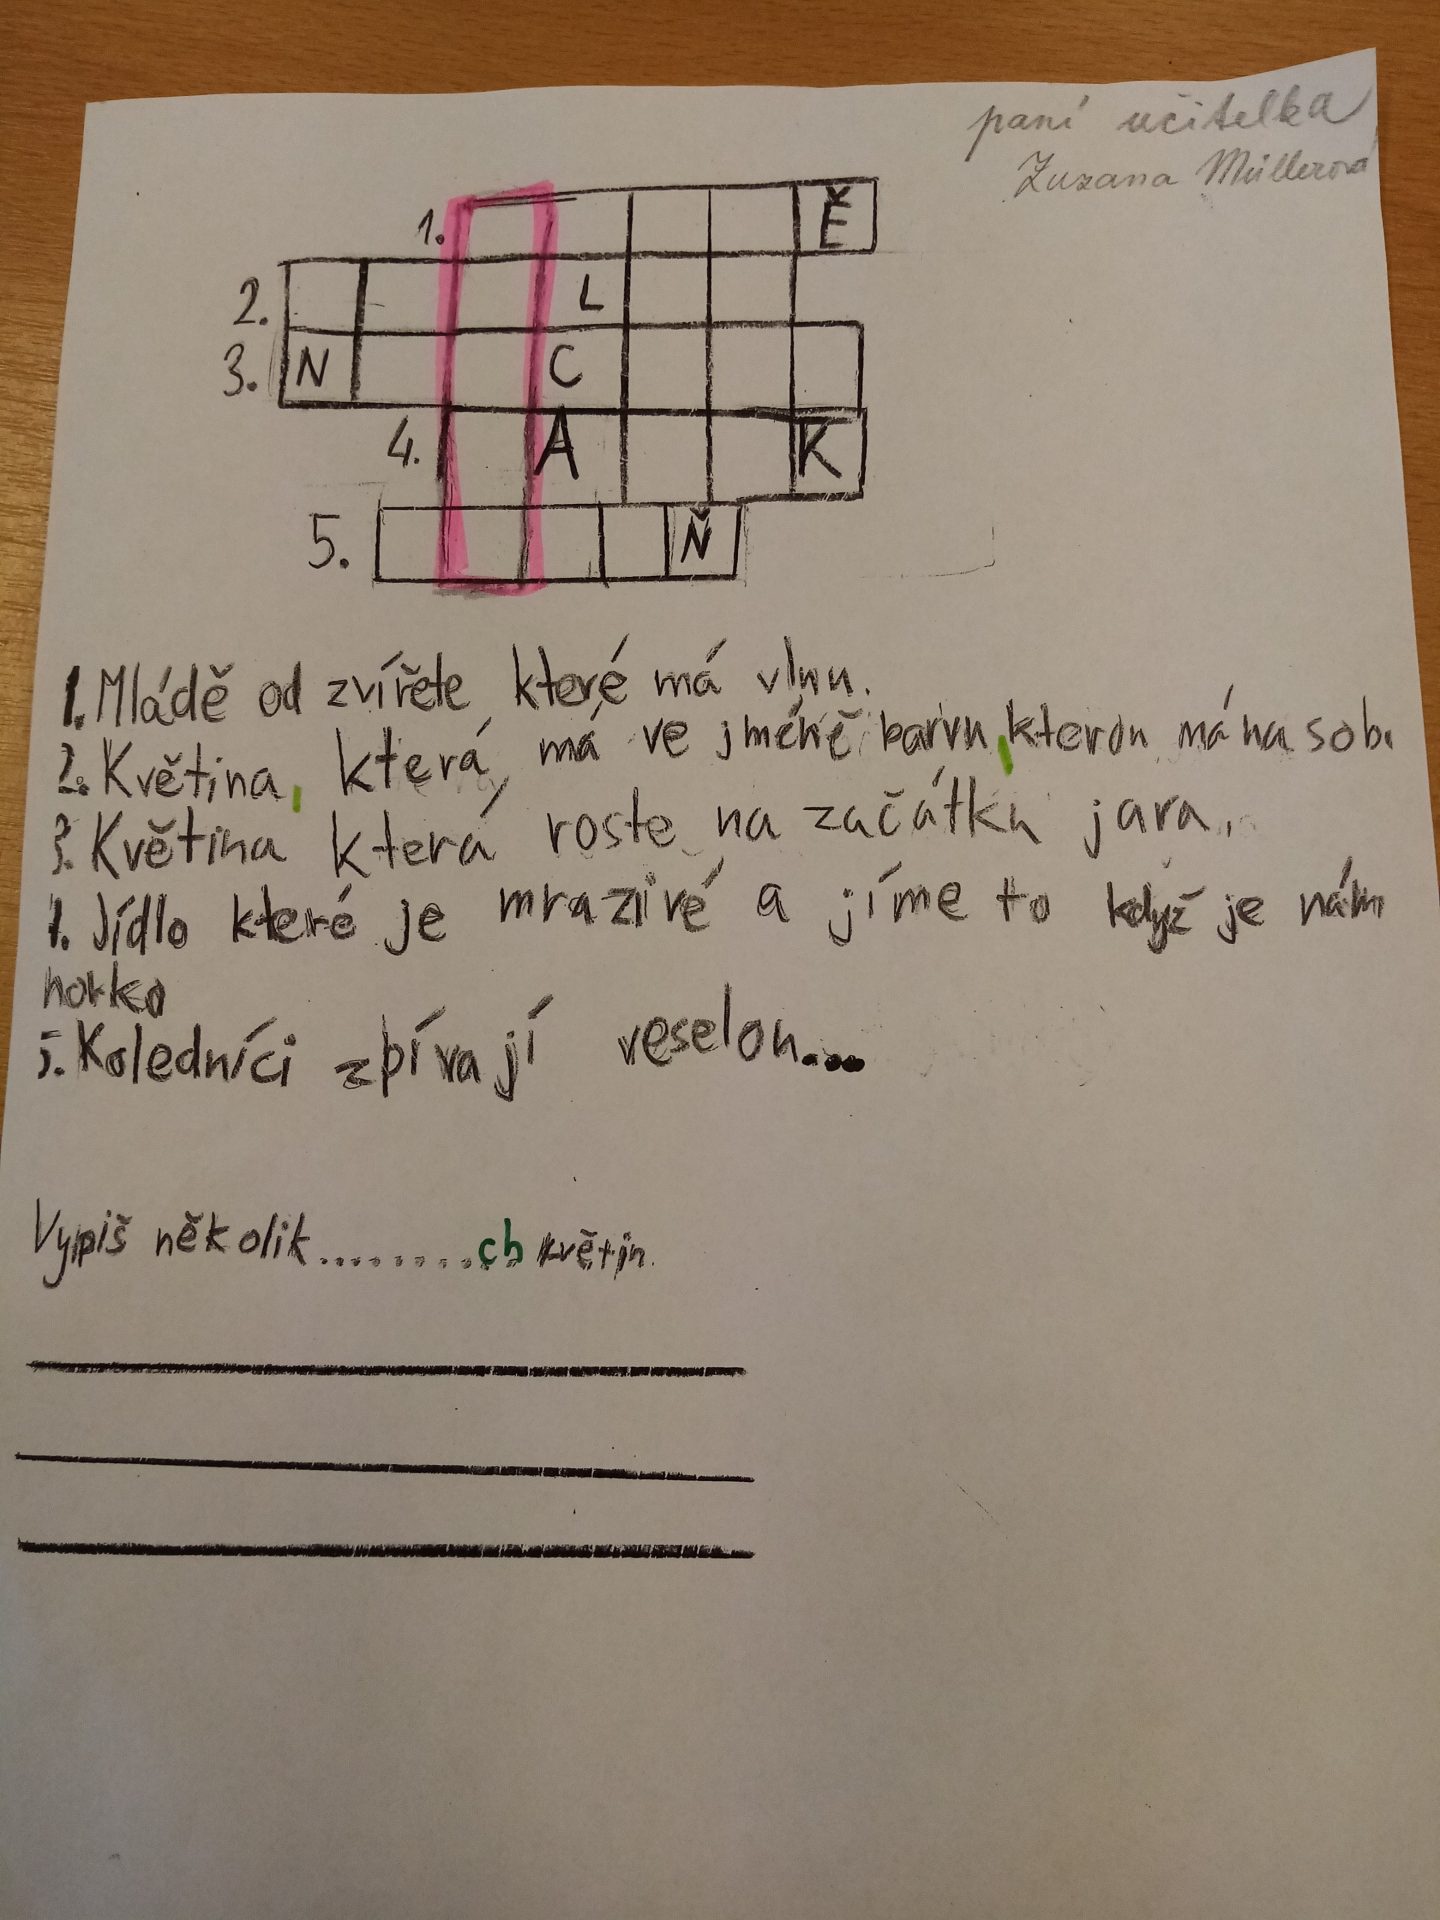 paní učitelka
Zuzana Müllerová
1. Ě
2. L
3. N C
4. A K
5. Ň
1. Mládě od zvířete které má vlnu.
2. Květina, která má ve jméně barvu, kterou má na sobě
3. Květina která roste na začátku jara.
4. Jídlo které je mrazivé a jíme to když je nám
horko
5. Koledníci zpívají veselou...
Vypiš několik........ch květin.